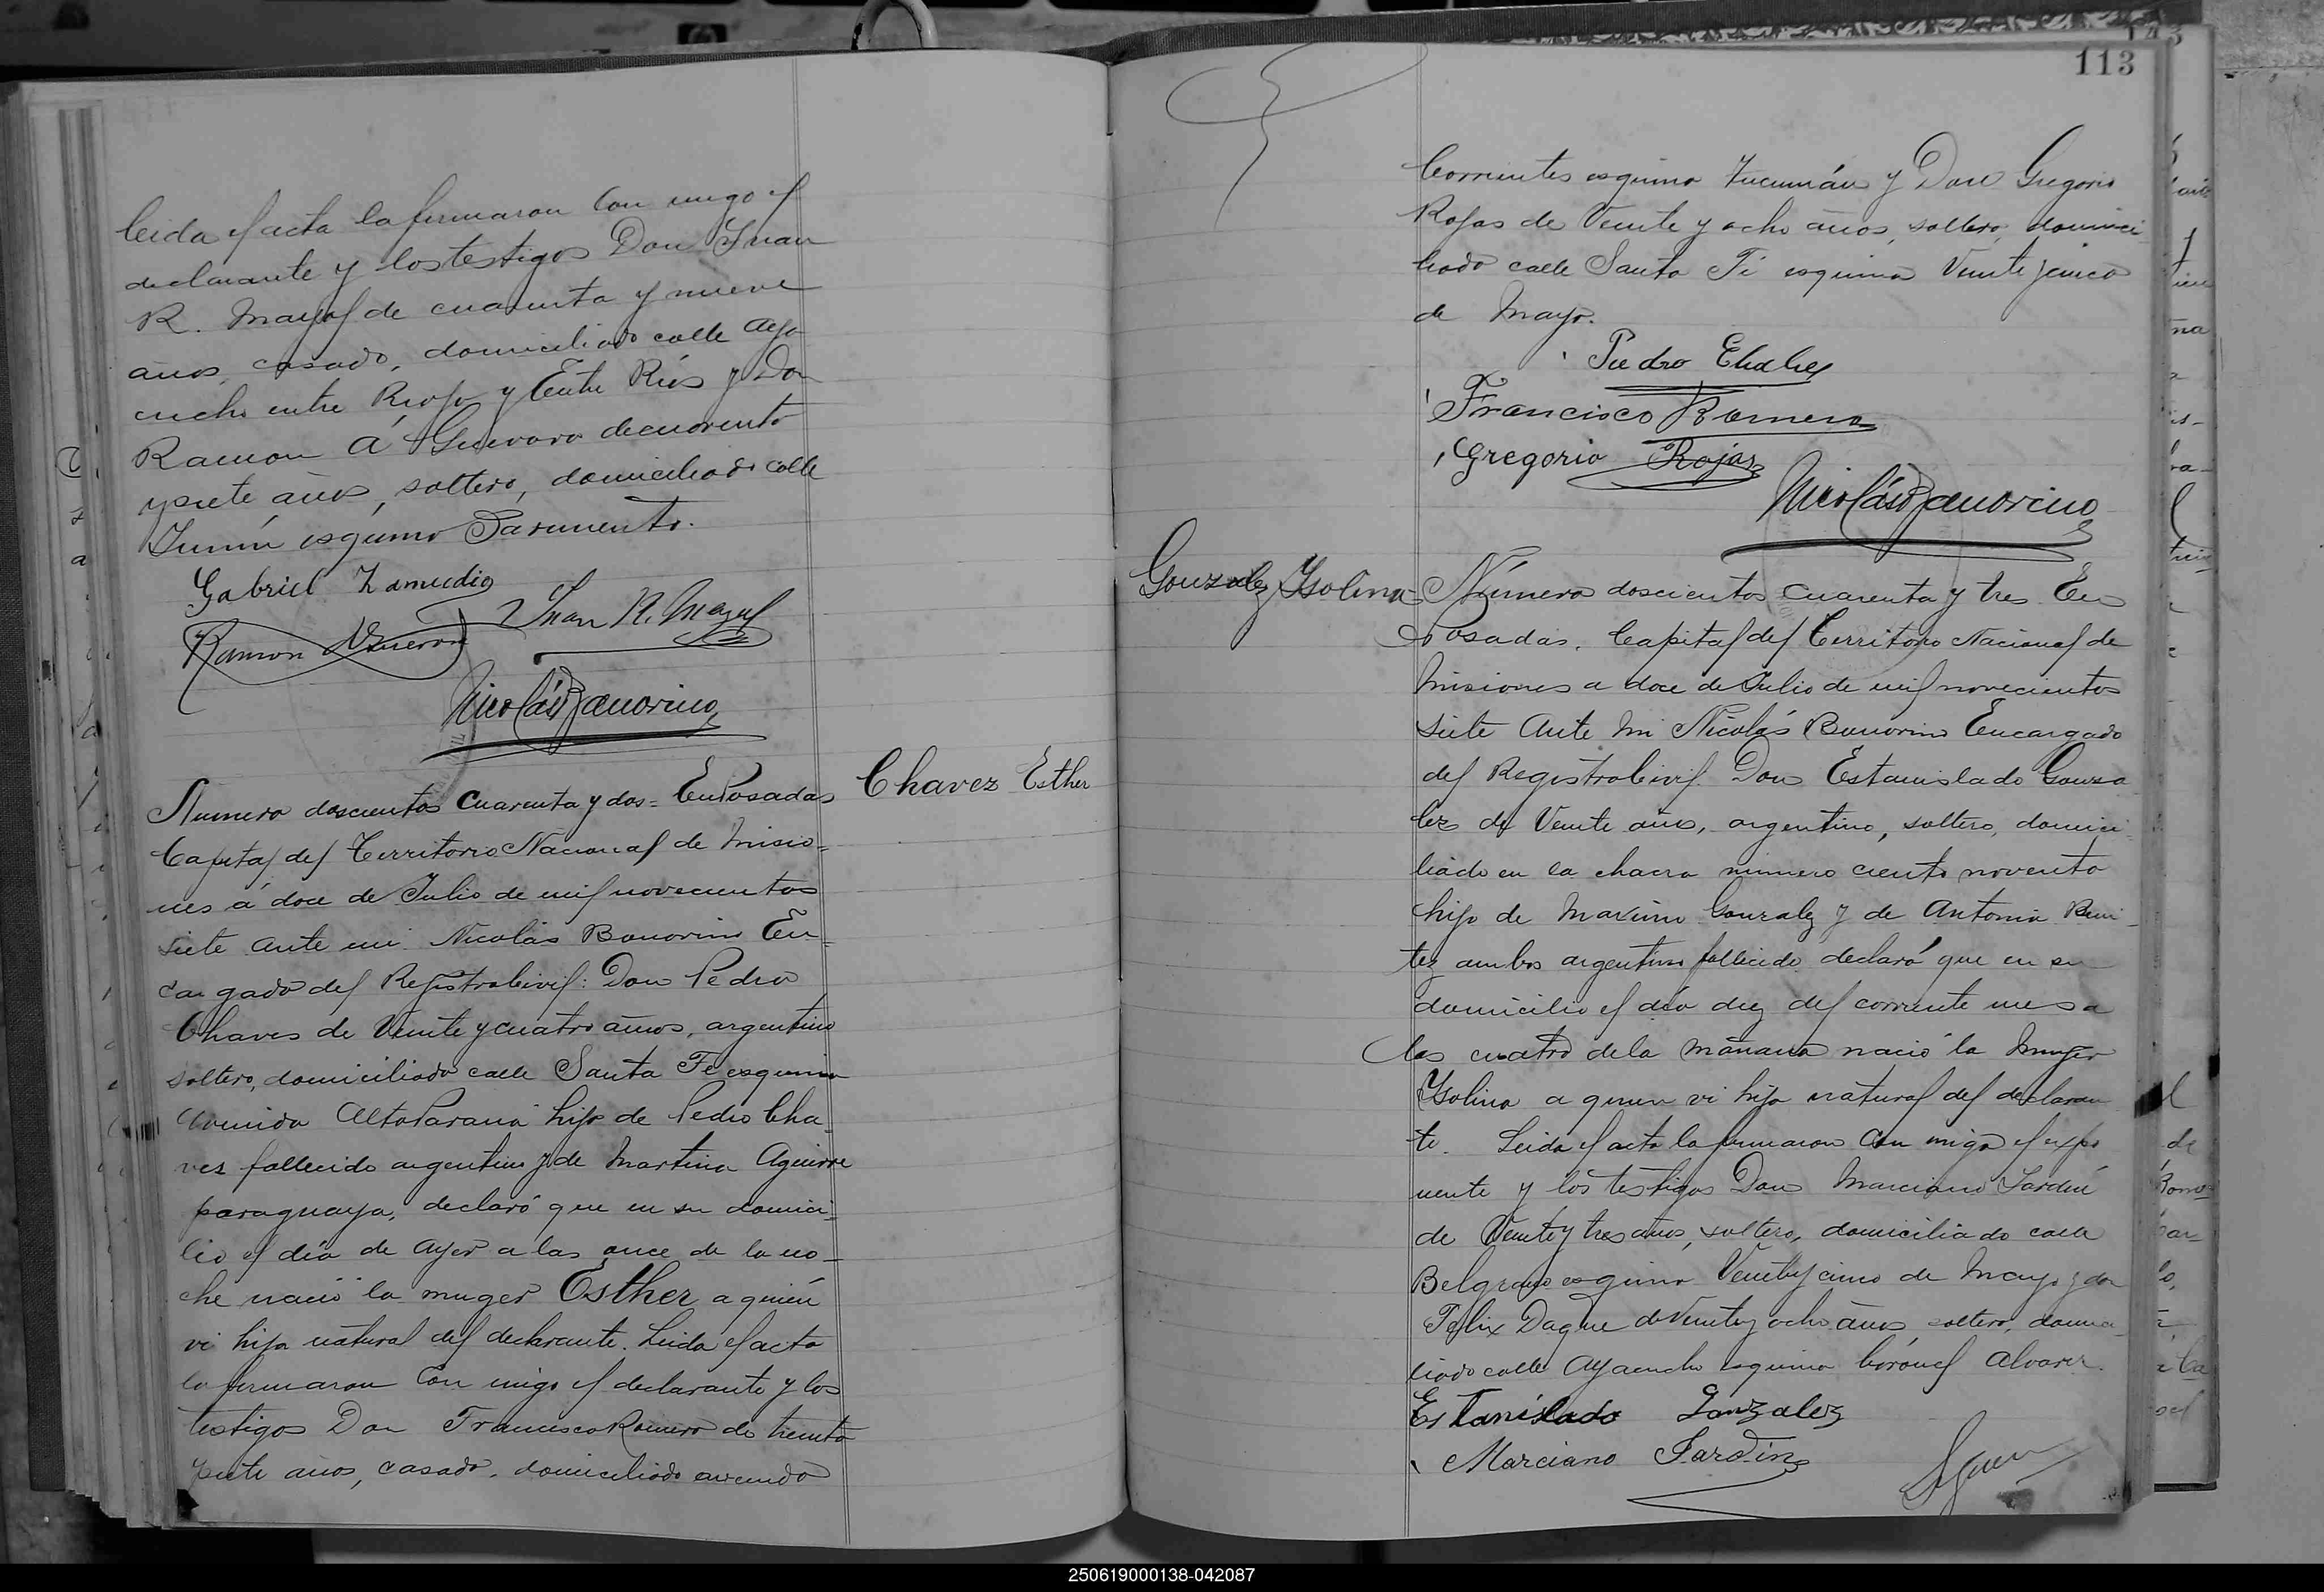 leida el acta la firmaron con migo el
declarante y los testigos Don Juan
R. Mayol de cuarenta y nueve
años, casado, domiciliado calle Aya
cucho entre Rioja y Entre Ríos y Don
Ramon A Guevara de cuarenta
y siete años, soltero, domiciliado calle
Junín esquina Sarmiento.
Gabriel Zamudio
Juan R. Mayol
Ramon Guevara
Nicolás Bonorino
Chavez Esther
Numero doscientos cuarenta y dos = En Posadas
Capital del Territorio Nacional de Misio=
nes á doce de Julio de mil novecientos
siete ante mi Nicolás Bonorino En=
cargado del Registro Civil: Don Pedro
Chaves de Veinte y cuatro años, argentino
soltero, domiciliado calle Santa Fé esquina
avenida Alto Paraná hijo de Pedro Cha-
ves fallecido argentino y de Martina Aguirre
paraguaya, declaró que en su domici-
lio el día de Ayer a las once de la no-
che nació la muger Esther a quién
vi hija natural del declarante. Leida el acta
la firmaron con migo el declarante y los
testigos Don Francisco Romero de treinta
y siete años, casado, domiciliado avenida
113
Corrientes esquina Tucumán y Don Gregorio
Rojas de Veinte y ocho años, soltero, domici-
liado calle Santa Fé esquina Veinte y cinco
de Mayo.
Pedro
Francisco Romero
Gregorio Rojas
Nicolás Bonorino
Gonzalez Ysolina = Número doscientos cuarenta y tres En
Posadas. Capital del Territorio Nacional de
Misiones a doce de Julio de mil novecientos
siete Ante mi Nicolás Bonorino Encargado
del Registro Civil Don Estanislado Gonza
lez de Veinte años, argentino, soltero, domici-
liado en la chacra numero ciento noventa
hijo de Maximo Gonzalez y de Antonia Beni-
tez ambos argentinos fallecido declaró que en su
domicilio el día diez del corriente mes a
las cuatro de la mañana nació la muger
Ysolina a quien vi hija natural del declaran
te. Leida el acta la firmaron con migo el expo
nente y los testigos Don Marciano Jardin
de Veinte y tres años, soltero, domiciliado calle
Belgrano esquina Veinte y cinco de Mayo y don
Felix Daque de Veinte y ocho años, soltero, domici-
liado calle Ayacucho esquina Coronel Alvarez.
Estanislado Gonzalez
Marciano Jardin
250619000138-042087